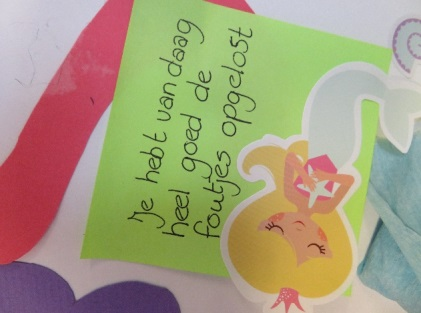 Je hebt vandaag
heel goed de
foutjes opgelost